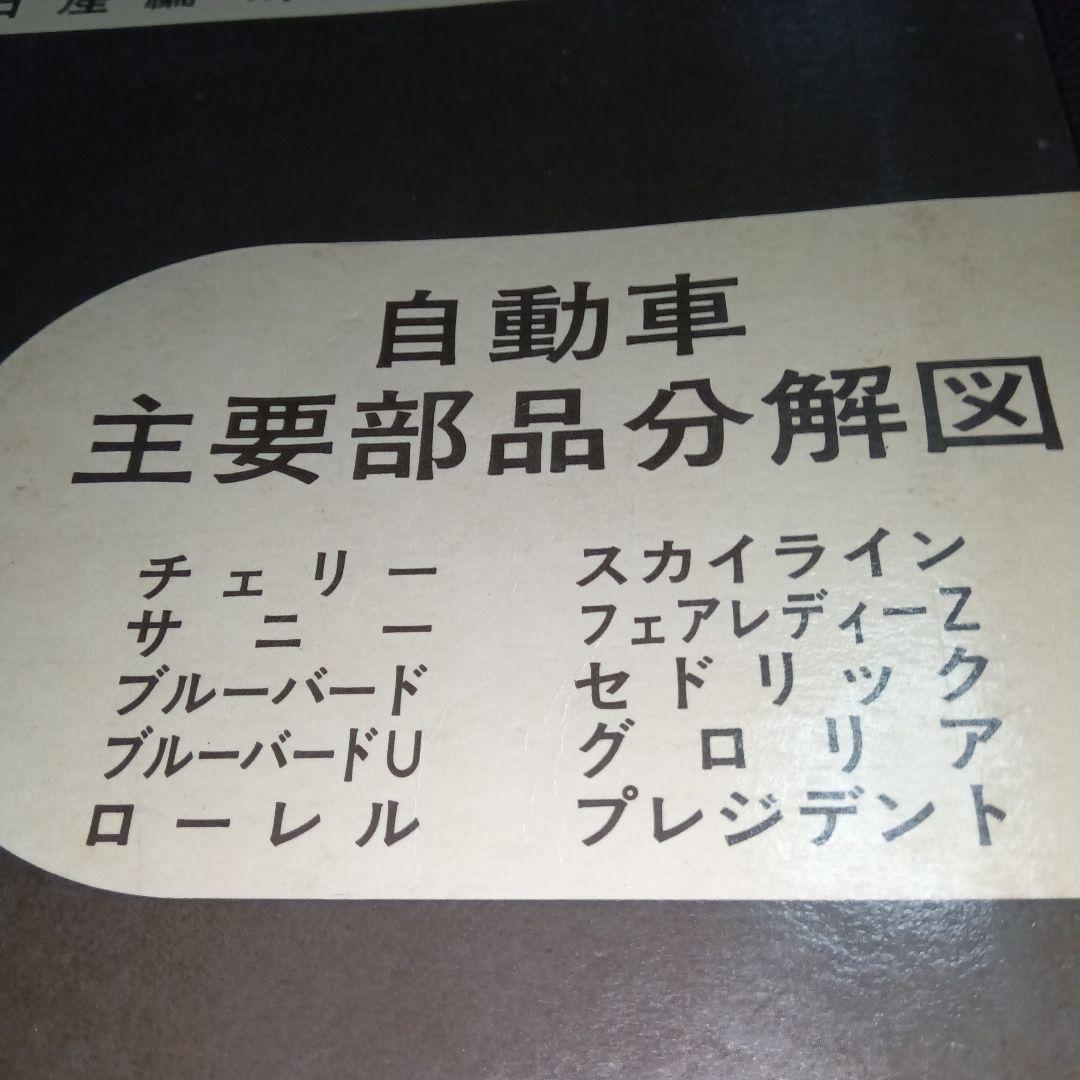 日産編
自動車
主要部品分解図
チェリー
サニー
ブルーバード
ブルーバードU
ローレル
スカイライン
フェアレディーZ
セドリック
グロリア
プレジデント